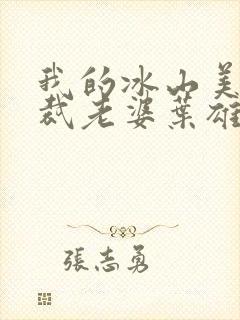 我的冰山美
裁老婆葉雄
張志勇